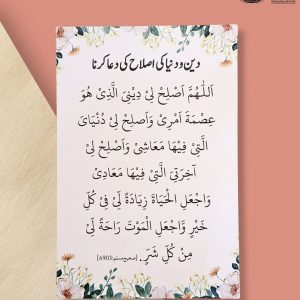 دین و دنیا کی اصلاح کی دعا کرنا
اَللّٰهُمَّ اَصْلِحْ لِیْ دِیْنِیَ الَّذِیْ هُوَ
عِصْمَةُ اَمْرِیْ وَاَصْلِحْ لِیْ دُنْیَایَ
الَّتِیْ فِیْهَا مَعَاشِیْ وَاَصْلِحْ لِیْ
اٰخِرَتِیَ الَّتِیْ فِیْهَا مَعَادِیْ
وَاجْعَلِ الْحَیَاةَ زِیَادَةً لِّیْ فِیْ كُلِّ
خَیْرٍ وَّاجْعَلِ الْمَوْتَ رَاحَةً لِّیْ
مِنْ كُلِّ شَرٍّ. [صحیح مسلم:6903]